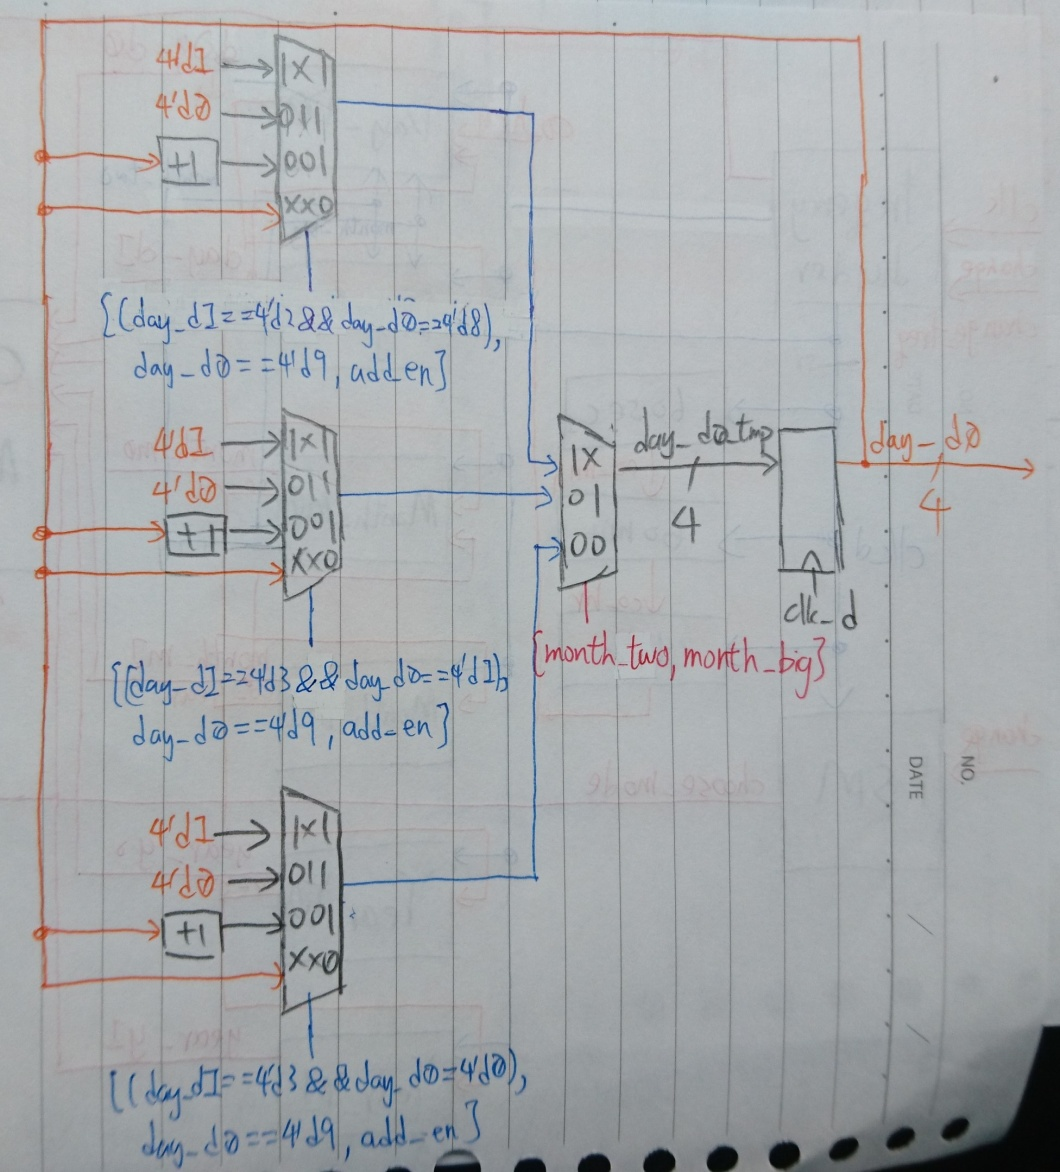 4'd1
1X1
4'd0
011
+1
001
XX0
{(day_d1==4'd2&&day_d0==4'd8),
day_d0==4'd9, add_en}
4'd1
1X1
4'd0
011
+1
001
XX0
{(day_d1==4'd3&&day_d0==4'd1),
day_d0==4'd9, add_en}
4'd1
1X1
4'd0
011
+1
001
XX0
{(day_d1==4'd3&&day_d0=4'd0),
day_d0==4'd9, add_en}
1X
01
00
{month_two, month_big}
day_d0_tmp
4
clk_d
day_d0
4
NO.
DATE